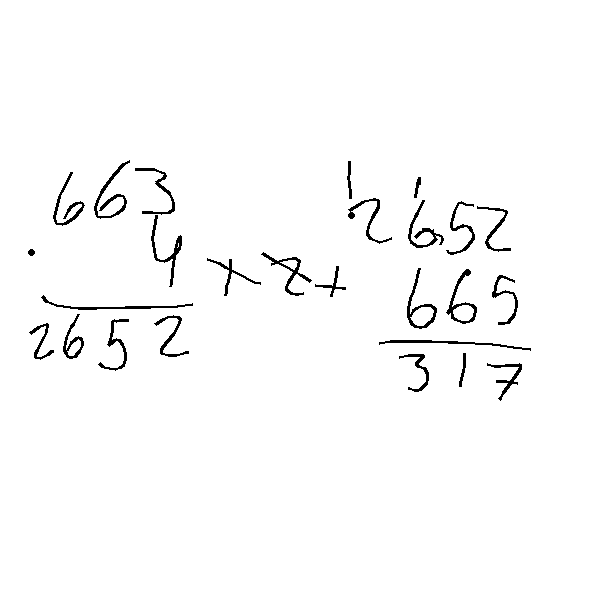 663
· 4
2652
× z +
1 1
2652
665
317